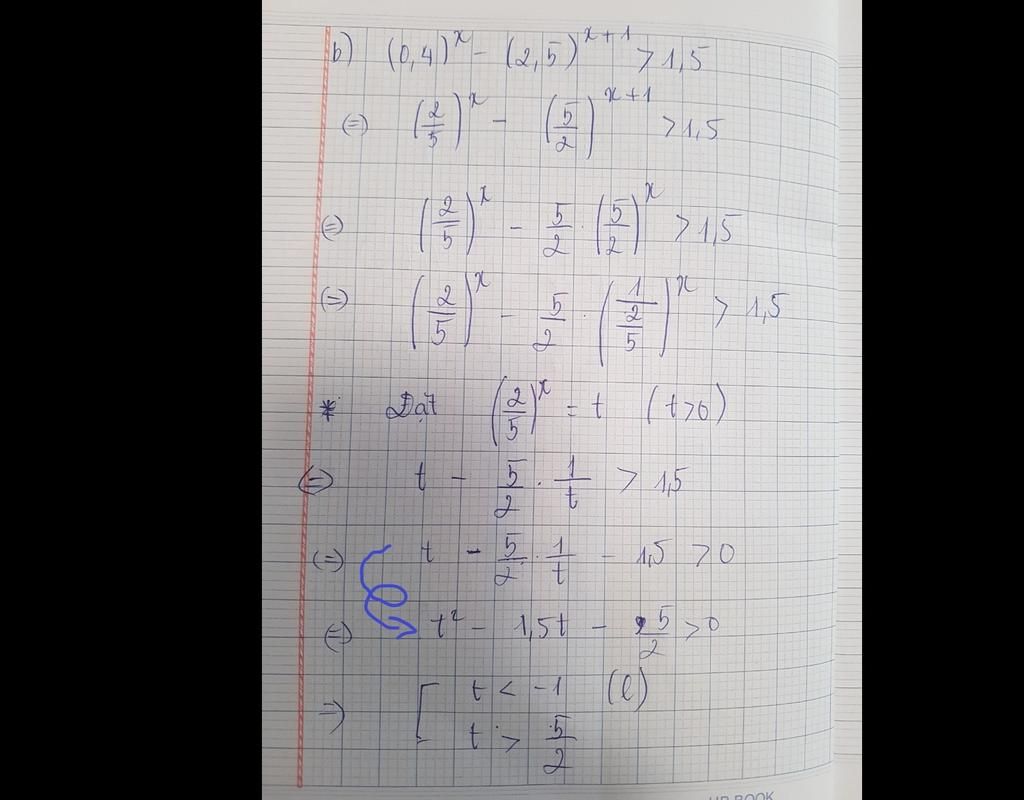 b) (0,4)^x - (2,5)^{x+1} > 1,5
(=) (2/5)^x - (5/2)^{x+1} > 1,5
(=) (2/5)^x - 5/2 . (5/2)^x > 1,5
(=) (2/5)^x - 5/2 . (1/(2/5))^x > 1,5
* Đặt (2/5)^x = t (t>0)
(=) t - 5/2 . 1/t > 1,5
(=) t - 5/2 . 1/t - 1,5 > 0
(=) t² - 1,5t - 5/2 > 0
=) [ t < -1 (l)
t > 5/2